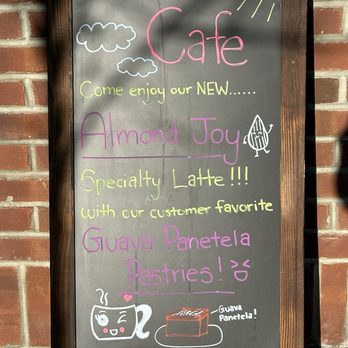 Cafe
Come enjoy our NEW......
Almond Joy
Specialty Latte!!!
with our customer favorite
Guava Panetela
Pastries!
Guava
Panetela!